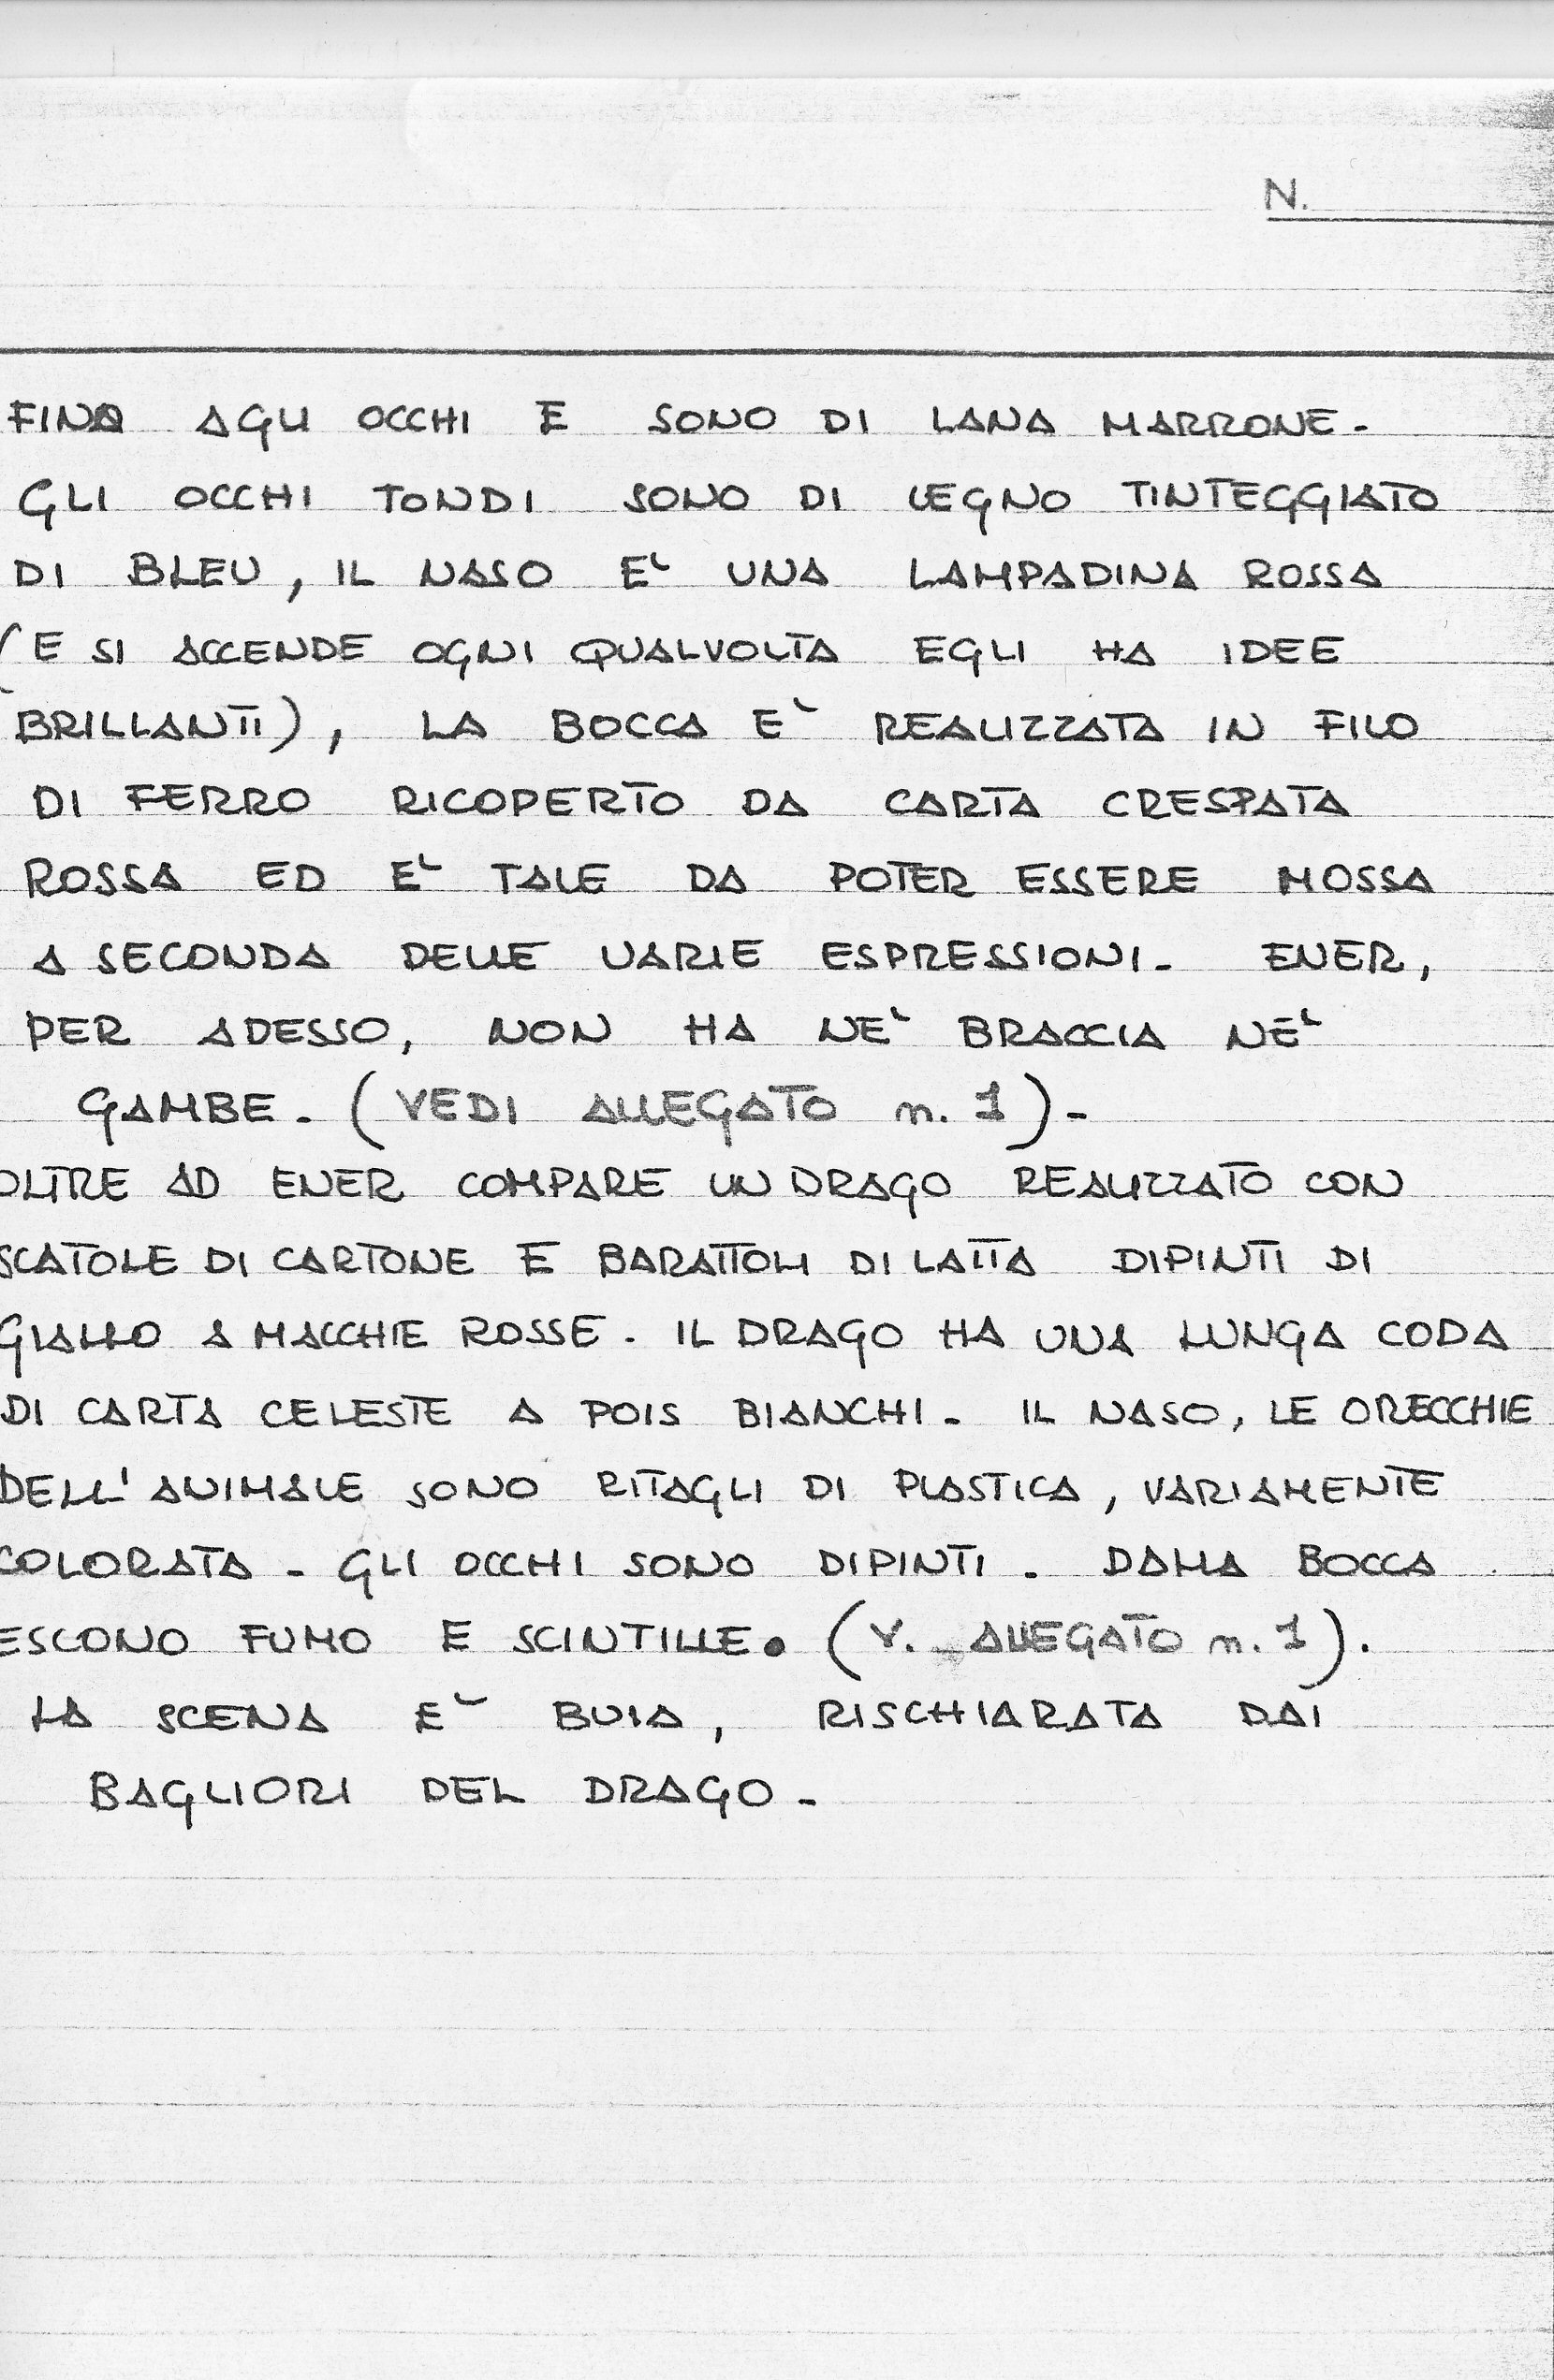 N.
FINO AGLI OCCHI E SONO DI LANA MARRONE.
GLI OCCHI TONDI SONO DI LEGNO TINTEGGIATO
DI BLEU, IL NASO E` UNA LAMPADINA ROSSA
(E SI ACCENDE OGNI QUALVOLTA EGLI HA IDEE
BRILLANTI), LA BOCCA E` REALIZZATA IN FILO
DI FERRO RICOPERTO DA CARTA CRESPATA
ROSSA ED E` TALE DA POTER ESSERE MOSSA
A SECONDA DELLE VARIE ESPRESSIONI. ENER,
PER ADESSO, NON HA NE` BRACCIA NE`
GAMBE. (VEDI ALLEGATO n. 1).
OLTRE AD ENER COMPARE UN DRAGO REALIZZATO CON
SCATOLE DI CARTONE E BARATTOLI DI LATTA DIPINTI DI
GIALLO A MACCHIE ROSSE. IL DRAGO HA UNA LUNGA CODA
DI CARTA CELESTE A POIS BIANCHI. IL NASO, LE ORECCHIE
DELL'ANIMALE SONO RITAGLI DI PLASTICA, VARIAMENTE
COLORATA. GLI OCCHI SONO DIPINTI. DALLA BOCCA
ESCONO FUMO E SCINTILLE. (V. ALLEGATO n. 1).
LA SCENA E` BUIA, RISCHIARATA DAI
BAGLIORI DEL DRAGO.